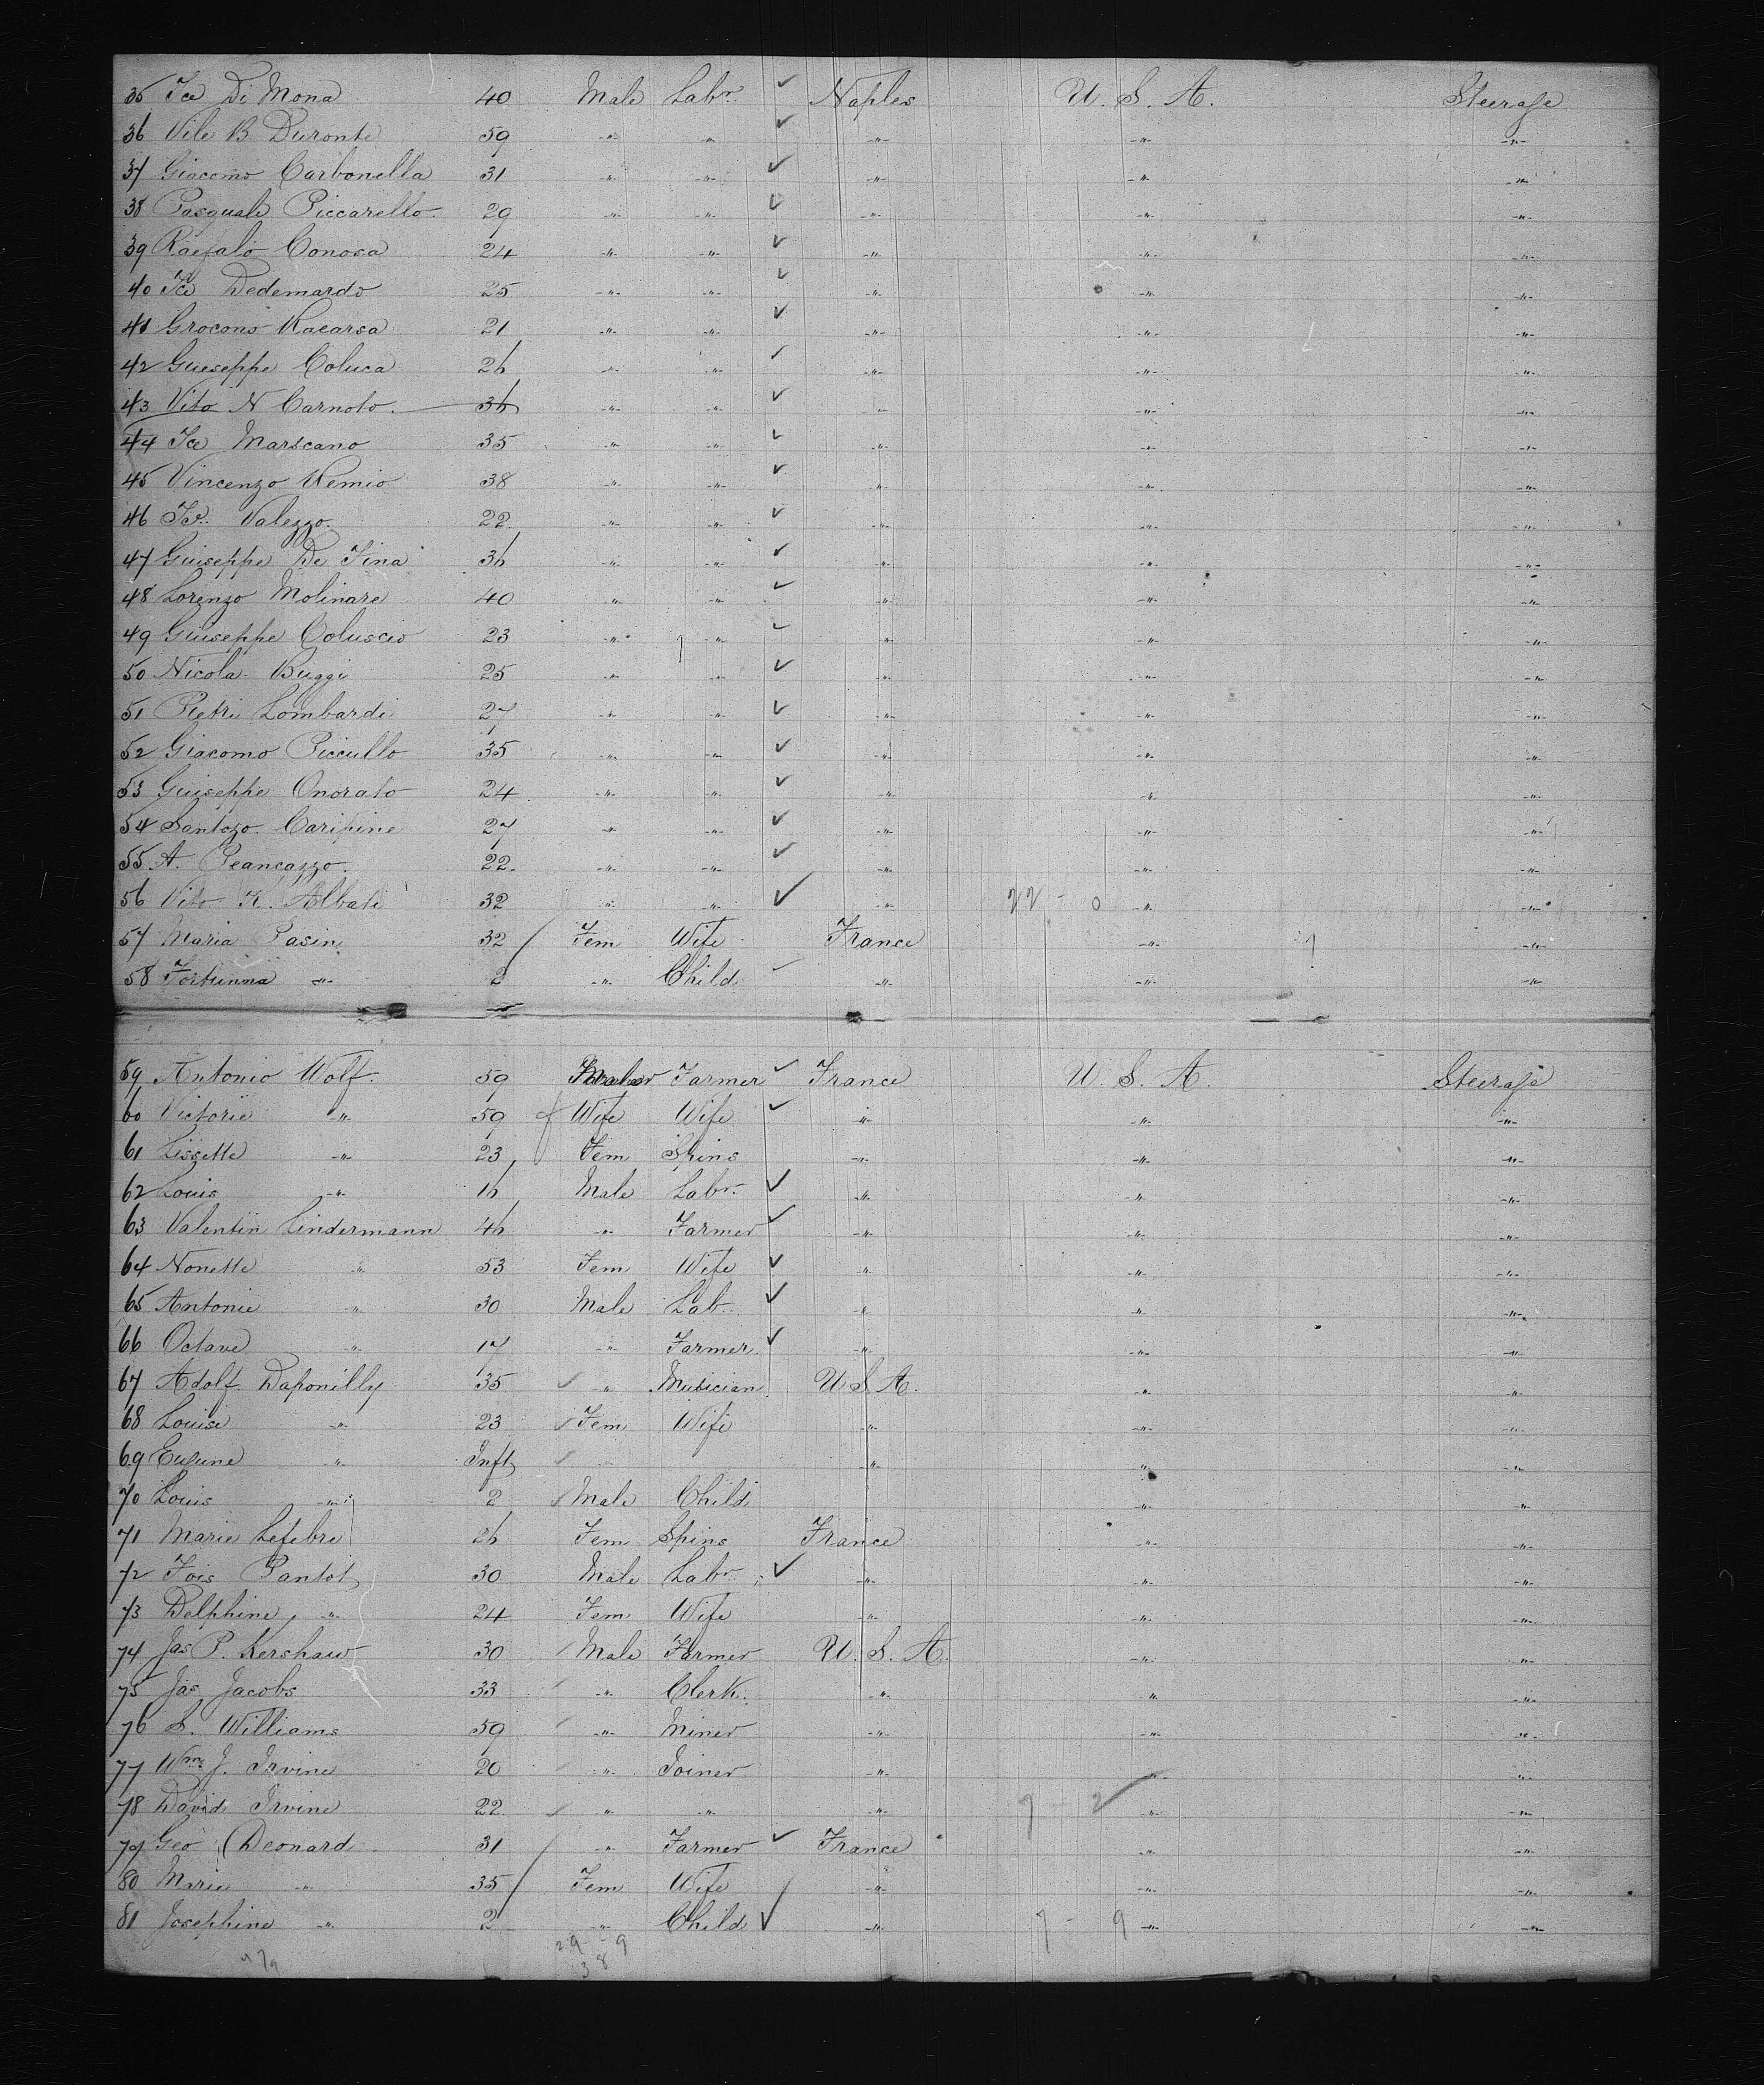 35 Ice Di Mona 40 Male Labr. Naples U. S. A. Steerage
36 Vile B. Duronte 59 -"- -"- -"- -"- -"-
37 Giacomo Carbonella 31 -"- -"- -"- -"- -"-
38 Pasquale Piccarello 29 -"- -"- -"- -"- -"-
39 Raefalo Conosa 24 -"- -"- -"- -"- -"-
40 Ice Dedemardo 25 -"- -"- -"- -"- -"-
41 Grocono Racarsa 21 -"- -"- -"- -"- -"-
42 Gueseppe Coluca 26 -"- -"- -"- -"- -"-
43 Vito N Carnoto 36 -"- -"- -"- -"- -"-
44 Ice Marscano 35 -"- -"- -"- -"- -"-
45 Vincenzo Remio 38 -"- -"- -"- -"- -"-
46 Valezzo. 22 -"- -"- -"- -"- -"-
47 Guiseppe De Fina 36 -"- -"- -"- -"- -"-
48 Lorenzo Molinare 40 -"- -"- -"- -"- -"-
49 Guiseppe Coluscio 23 -"- -"- -"- -"- -"-
50 Nicola Buggi 25 -"- -"- -"- -"- -"-
51 Pietri Lombardi 27 -"- -"- -"- -"- -"-
52 Giacomo Piccullo 35 -"- -"- -"- -"- -"-
53 Guiseppe Onorato 24 -"- -"- -"- -"- -"-
54 Santozo. Caripine 27 -"- -"- -"- -"- -"-
55 A. Peancazzo. 22 -"- -"- -"- -"- -"-
56 Vito K. Albate 32 -"- -"- -"- 22 - 0 -"- -"-
57 Maria Pasin 32 Fem Wife France -"- -"-
58 Fortunna -"- 2 -"- Child -"- -"- -"-
59 Antonio Wolf. 59 Farmer France U. S. A. Steerage
60 Victorie -"- 59 Wife Wife -"- -"- -"-
61 Lissette -"- 23 Fem Spins -"- -"- -"-
62 Louis -"- 16 Male Labr. -"- -"- -"-
63 Valentin Lindermann 46 -"- Farmer -"- -"- -"-
64 Nonette -"- 53 Fem Wife -"- -"- -"-
65 Antonie -"- 30 Male Lab. -"- -"- -"-
66 Octave -"- 17 -"- Farmer -"- -"- -"-
67 Adolf. Daponilly 35 -"- Musician U S A. -"- -"-
68 Louise -"- 23 Fem Wife -"- -"- -"-
69 Eugune -"- Inft -"- -"- -"- -"-
70 Louis -"- 2 Male Child -"- -"-
71 Marie Lefebre 26 Fem Spins France -"- -"-
72 Fois Pantot 30 Male Labr. -"- -"- -"-
73 Delphine -"- 24 Fem Wife -"- -"- -"-
74 Jas P. Kershaw 30 Male Farmer U. S. A. -"- -"-
75 Jas Jacobs 33 -"- Clerk. -"- -"- -"-
76 S. Williams 59 -"- Miner -"- -"- -"-
77 Wm. J. Irvine 20 -"- Joiner -"- -"- -"-
78 David Irvine 22 -"- -"- -"- 7 - 2 -"- -"-
79 Geo Deonard 31 -"- Farmer France -"- -"-
80 Marie -"- 35 Fem Wife -"- -"- -"-
81 Josephine -"- 2 -"- Child -"- 7 - 9 -"- -"-
29 - 9
38